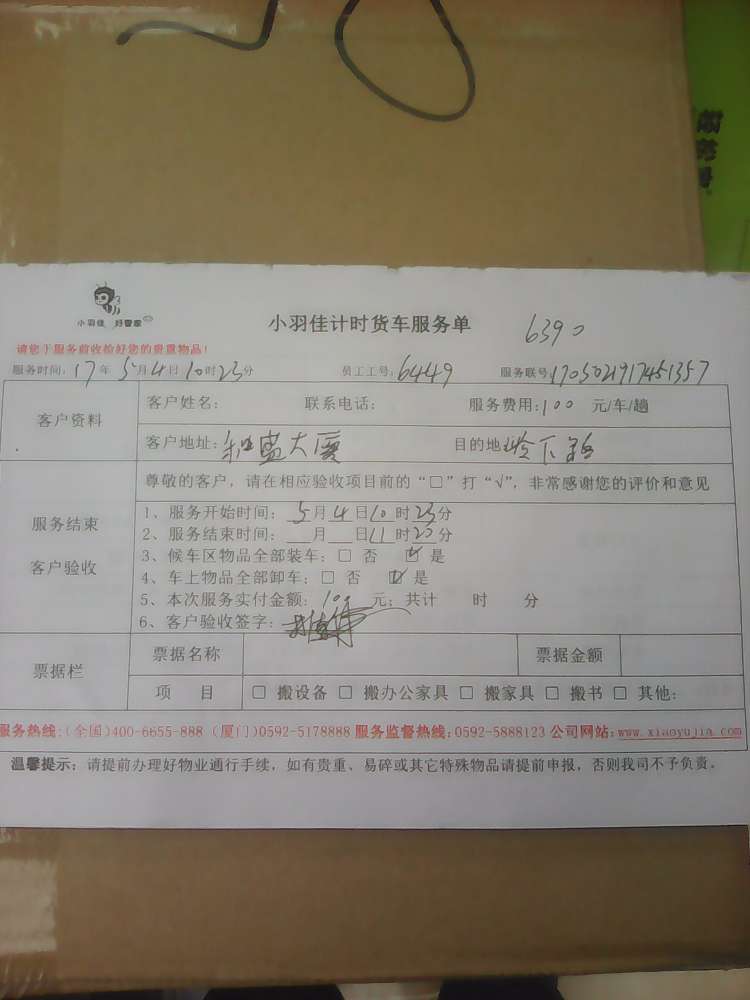 小羽佳 好管家
小羽佳计时货车服务单 6390
请您于服务前收捡好您的贵重物品！
服务时间：17年5月4日10时23分 员工工号：6449 服务联号：170502191745 1357
客户资料
客户姓名： 联系电话： 服务费用：100 元/车/趟
客户地址：和盛大厦 目的地：岭下路
服务结束
客户验收
尊敬的客户，请在相应验收项目前的“□”打“√”，非常感谢您的评价和意见
1、服务开始时间：5月4日10时23分
2、服务结束时间：__月__日11时20分
3、候车区物品全部装车：□ 否 ☑ 是
4、车上物品全部卸车：□ 否 ☑ 是
5、本次服务实付金额：100元；共计 时 分
6、客户验收签字：
票据栏
票据名称 票据金额
项 目 □ 搬设备 □ 搬办公家具 □ 搬家具 □ 搬书 □ 其他：
服务热线:(全国)400-6655-888 (厦门)0592-5178888 服务监督热线:0592-5888123 公司网站:www.xiaoyujia.com
温馨提示：请提前办理好物业通行手续，如有贵重、易碎或其它特殊物品请提前申报，否则我司不予负责。